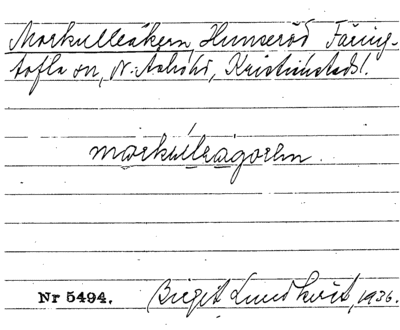 Markulleåkern, Hunseröd Färing-
tofta sn, N. Åsbohd, Kristianstadsl.
markúlleagoren
Nr 5494. Birgit Lundkvist, 1936.